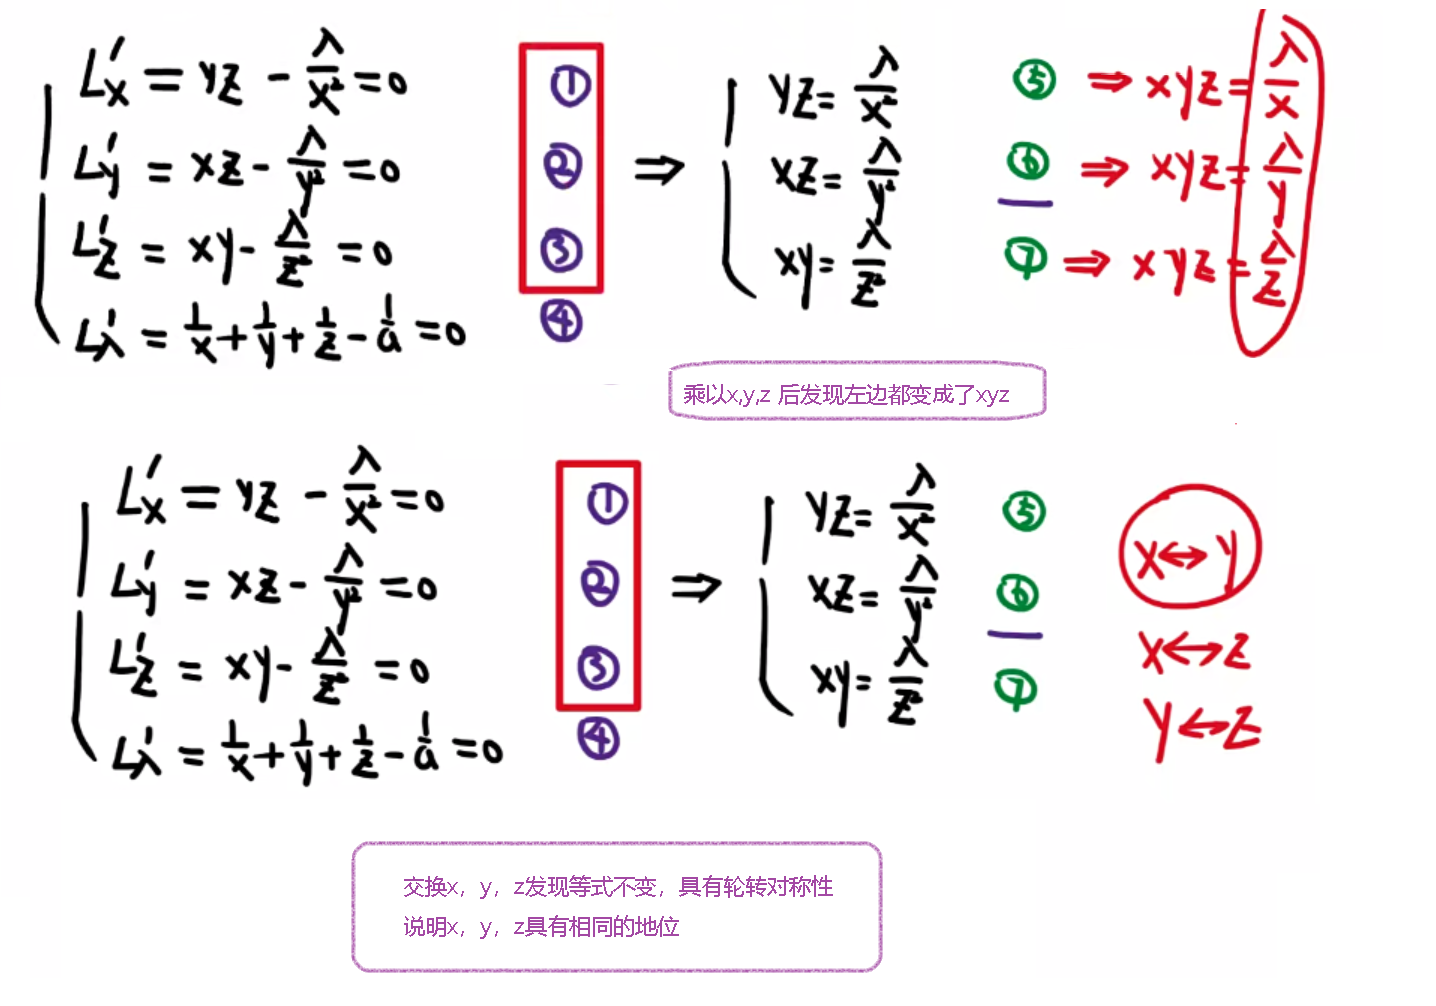 L'x = yz - λ/x² = 0 ①
L'y = xz - λ/y² = 0 ②
L'z = xy - λ/z² = 0 ③
L'λ = 1/x + 1/y + 1/z - 1/a = 0 ④
⇒
yz = λ/x² ⑤ ⇒ xyz = λ/x
xz = λ/y² ⑥ ⇒ xyz = λ/y
xy = λ/z² ⑦ ⇒ xyz = λ/z
乘以x,y,z 后发现左边都变成了xyz
L'x = yz - λ/x² = 0 ①
L'y = xz - λ/y² = 0 ②
L'z = xy - λ/z² = 0 ③
L'λ = 1/x + 1/y + 1/z - 1/a = 0 ④
⇒
yz = λ/x² ⑤
xz = λ/y² ⑥
xy = λ/z² ⑦
x↔y
x↔z
y↔z
交换x，y，z发现等式不变，具有轮转对称性
说明x，y，z具有相同的地位